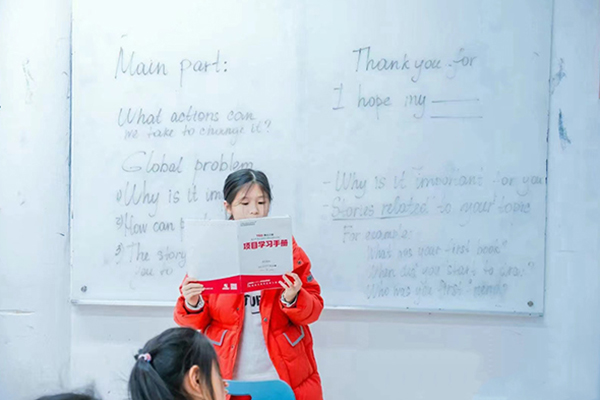 Main part:
What actions can
we take to change it?
Global problem
1) Why is it im
2) How can
3) The story
you to do
Thank you for
I hope my
- Why is it important for you
- Stories related to your topic
For example:
What was your first book?
When did you start to
Who was your first friend?
项目学习手册